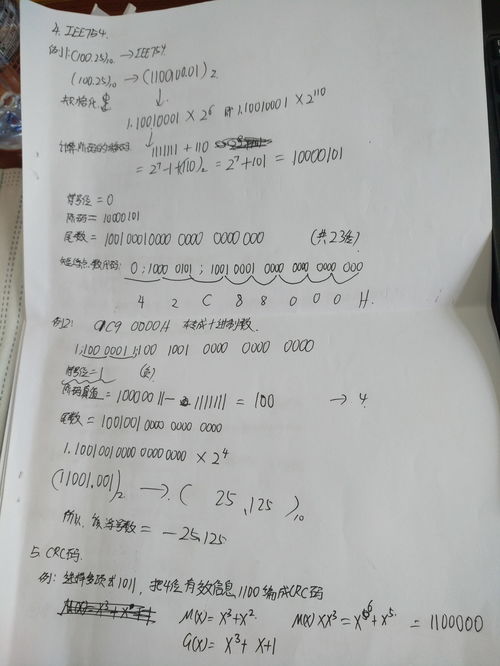 4. IEE754.
例1: (100.25)₁₀ → IEE754
(100.25)₁₀ → (1100100.01)₂
规格化 ↓
1.10010001 × 2⁶ 即 1.10010001 × 2¹¹⁰
计算阶码的
1111111 + 110
= 2⁷-1+(110)₂ = 2⁷+101 = 10000101
符号位 = 0
阶码 = 10000101
尾数 = 10010001 0000 0000 0000 000 (共23位)
短浮点数代码: 0 ; 1000 0101 ; 1001 0001 0000 0000 0000 000
4 2 C 8 8 0 0 0 H.
例2: C1C9 0000H 转成十进制数.
1; 100 0001 1; 100 1001 0000 0000 0000 0000
符号位 = 1 (负)
阶码真值 = 100000 11 - 1111111 = 100 → 4.
尾数 = 1001001 0000 0000 0000
1.1001001 0000 0000 0000 × 2⁴
(11001.001)₂ → ( 25.125 )₁₀
所以, 该浮点数 = -25.125
5. CRC码.
例: 选择多项式 1011, 把4位有效信息 1100 编成CRC码
M(x) = x³+x² M(x)×x³ = x⁶+x⁵ = 1100000
G(x) = x³+x+1